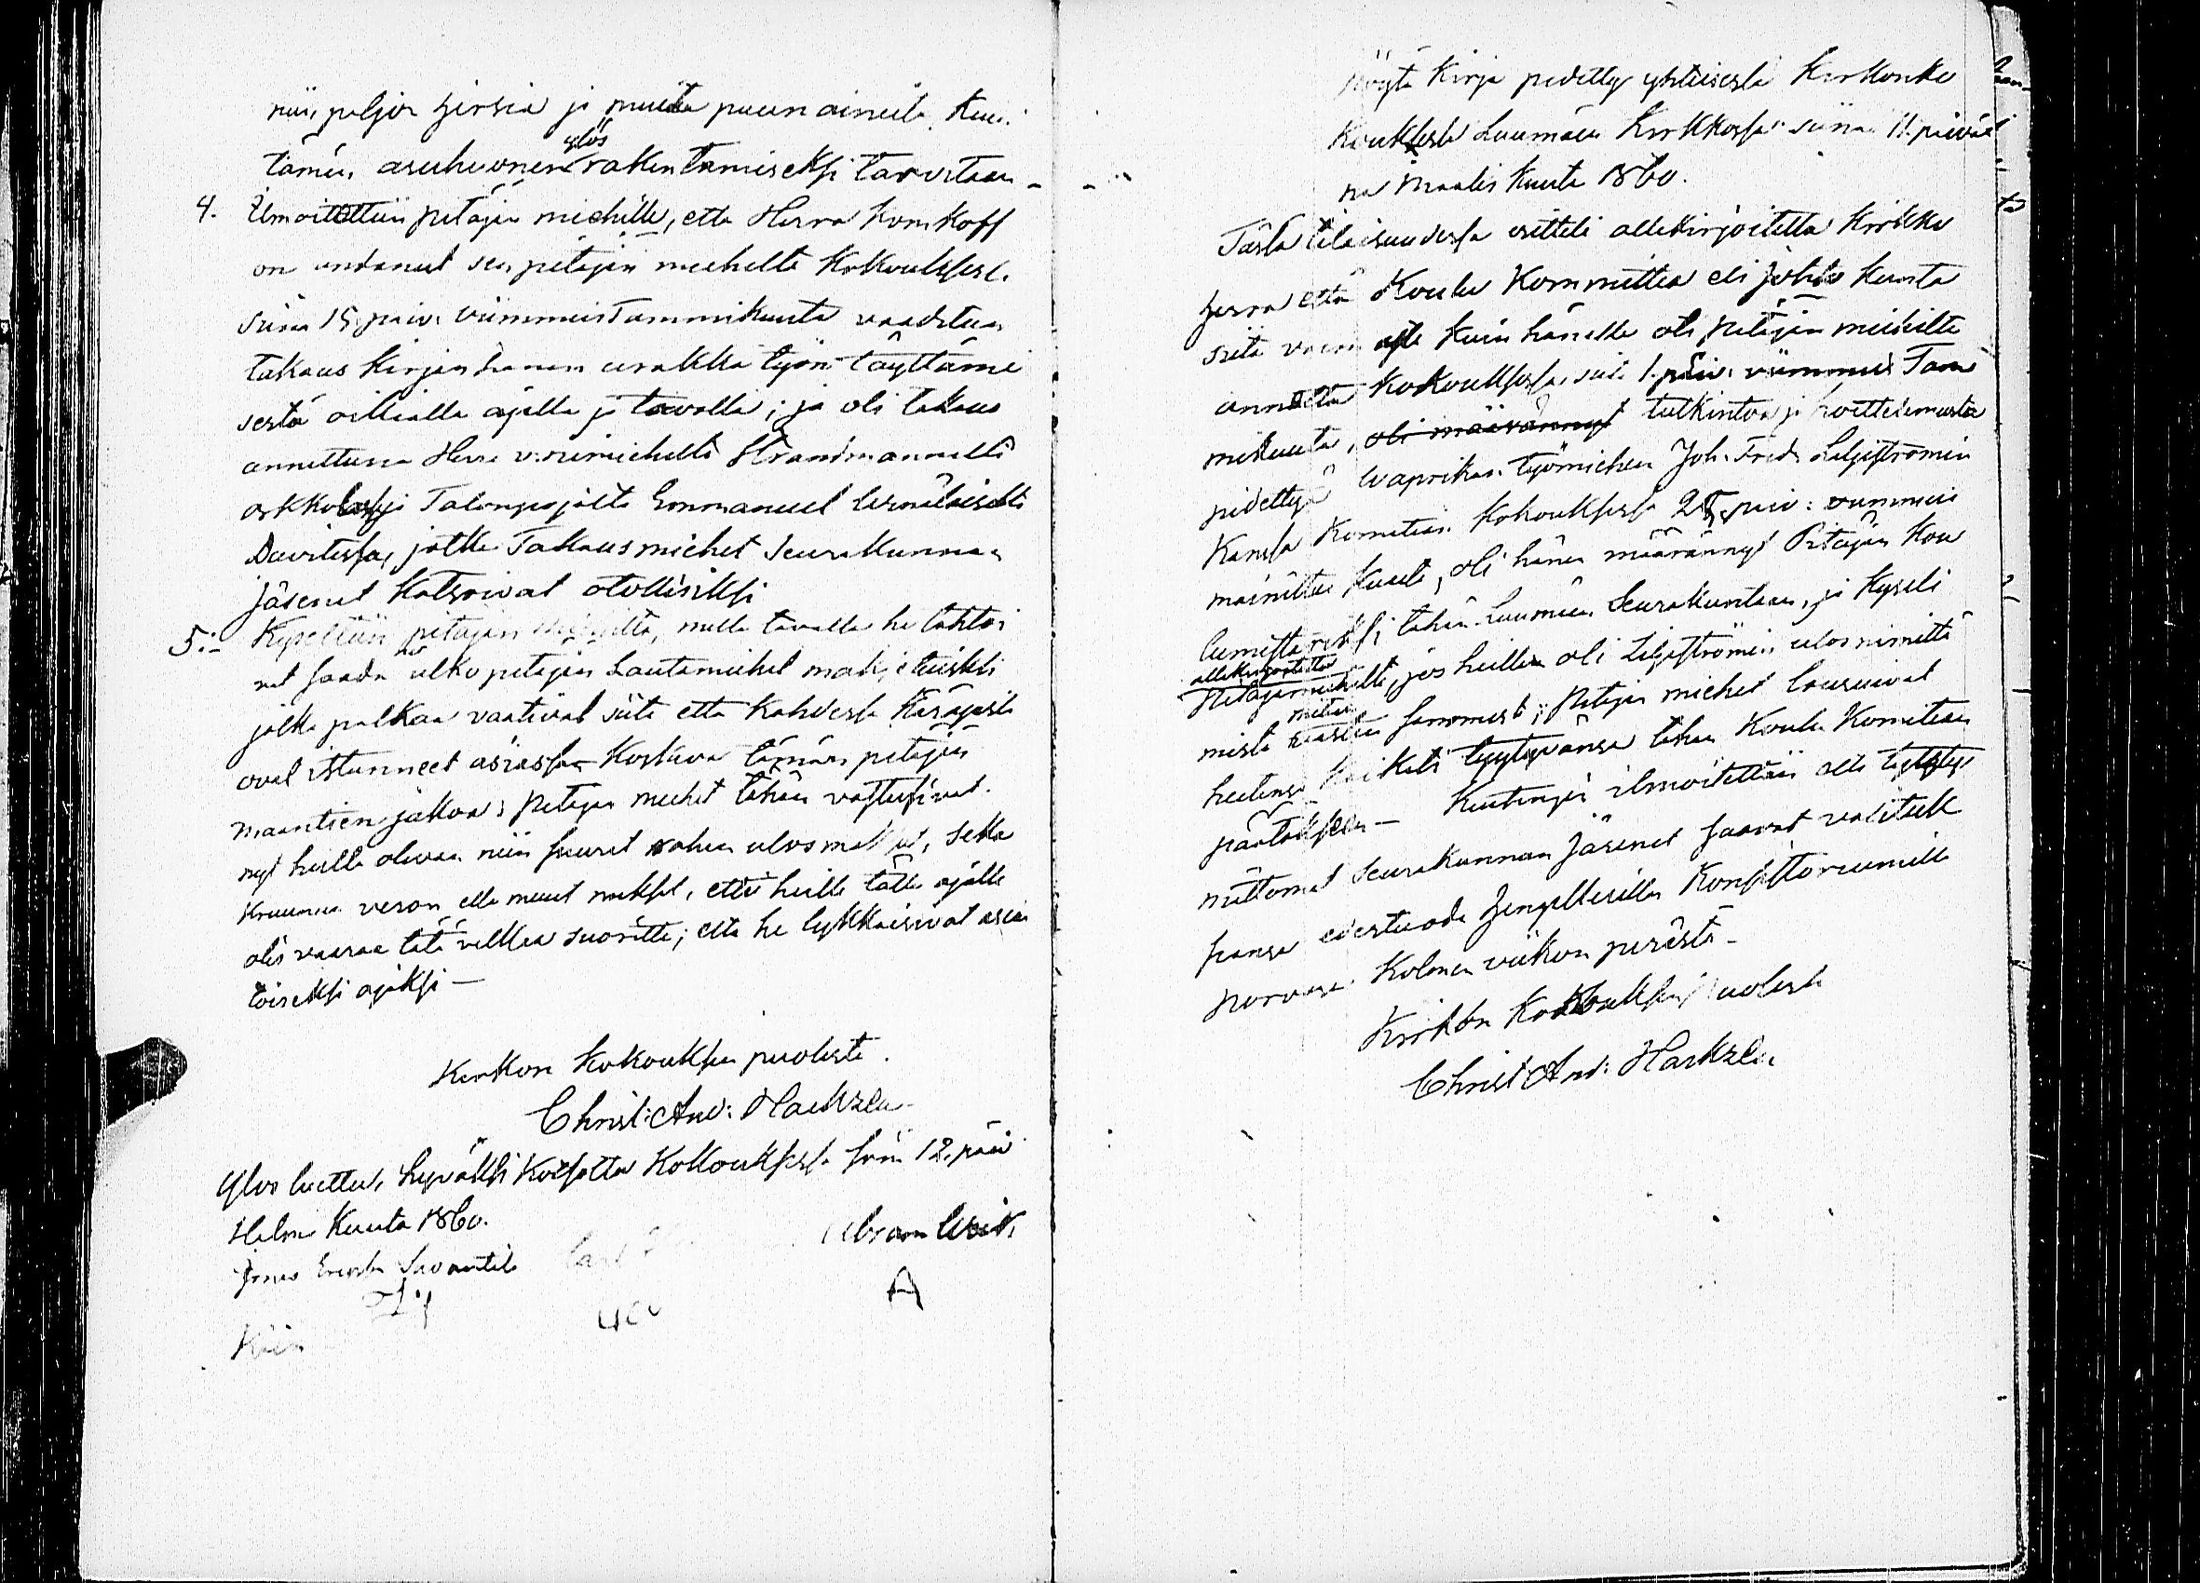 niin paljon hirsiä ja muita puun aineita, kuin
tämän asuhuonen ylös rakentamiseksi tarvitaan -
4. Ilmoitettiin pitäjän miehille, että Herra Komkoff
on andanut sen pitäjän miehiltä kokouksess.
siinä 15. päiv. viimmeis Tammikuuta vaadetun
takaus kirjan hänen urakka työn täyttämi
sestä oikialla ajalla ja tavalla; ja oli takaus
annettuna Herra Strandmannilta
ja Talonpojalta Emmanuel
Davitissa, jotka Takausmiehet Seurakunnan
jäsenet katsoivat otollisiksi
5:- Kysyttiin pitäjän miehiltä, millä tavalla he tahtoi
nut saada ulko pitäjän Lautamiehet
jotka palkkaa vaativat siitä että kahdessa käräjässä
ovat istunneet asiassa koskeva tämän pitäjän
maantien jakoa; Pitäjän miehet tähän vastasivat.
nyt heillä olevan niin suuret rahan ulosmaksut, sekä
Kruunun veron että muut maksut, että heille tällä ajalla
olis vaaraa tätä velkaa suoritta; että he lykkäisivät asian
toiseksi ajaksi —
Kirkon kokouksen puolesta.
Christ: And: Hackzell
Ylös luettu, hyväksi katsottu Kokouksessa siin 12. päiv
Helmi Kuuta 1860.
Jonas Savantila
Abram
A
Pöytä Kirja pidetty yhteisessä Kirkonko
kouksessa Luumäen Kirkkossa siinä 11. päivä
nä Maalis Kuuta 1860.
Tässä tilaisuudessa esitteli allekirjoitettu Kirkko
herra että Koulu Kommittea eli johto kunta
siitä kuin hänelle oli pitäjän miehiltä
annettu kokouksessa, siit 1. päiv. viimmeis Tam
mikuuta, oli määrännyt tutkintoa ja koettelemusta
pidettyä työmiehen Joh. Fred. Liljeströmin
Kanssa Komitean Kokouksessa 25. päiv: viimmeis
mainittua kuuta, oli hänen määrännyt Pitäjän Kou
lumestariksi tähän Luumäen Seurakuntaan, ja kyseli
allekirjoitettu
Pitäjänmiehiltä, jos heillä oli Liljeströmin ulosnimittä
mistä vastaan sanomista; Pitäjän miehet lausuivat
heitinsä kaikkti tyytyvänsä tähän Koulu Komitean
päätökseen — Kuitenkin ilmoitettiin että tyyty
mättömät Seurakunnan Jäsenet saavat valituk
sansa edestuoda Hengelliselle Konsistoriumille
Porvosa kolmen viikon perästä —
Kirkon Kokouksen puolesta
Christ And: Hackzell